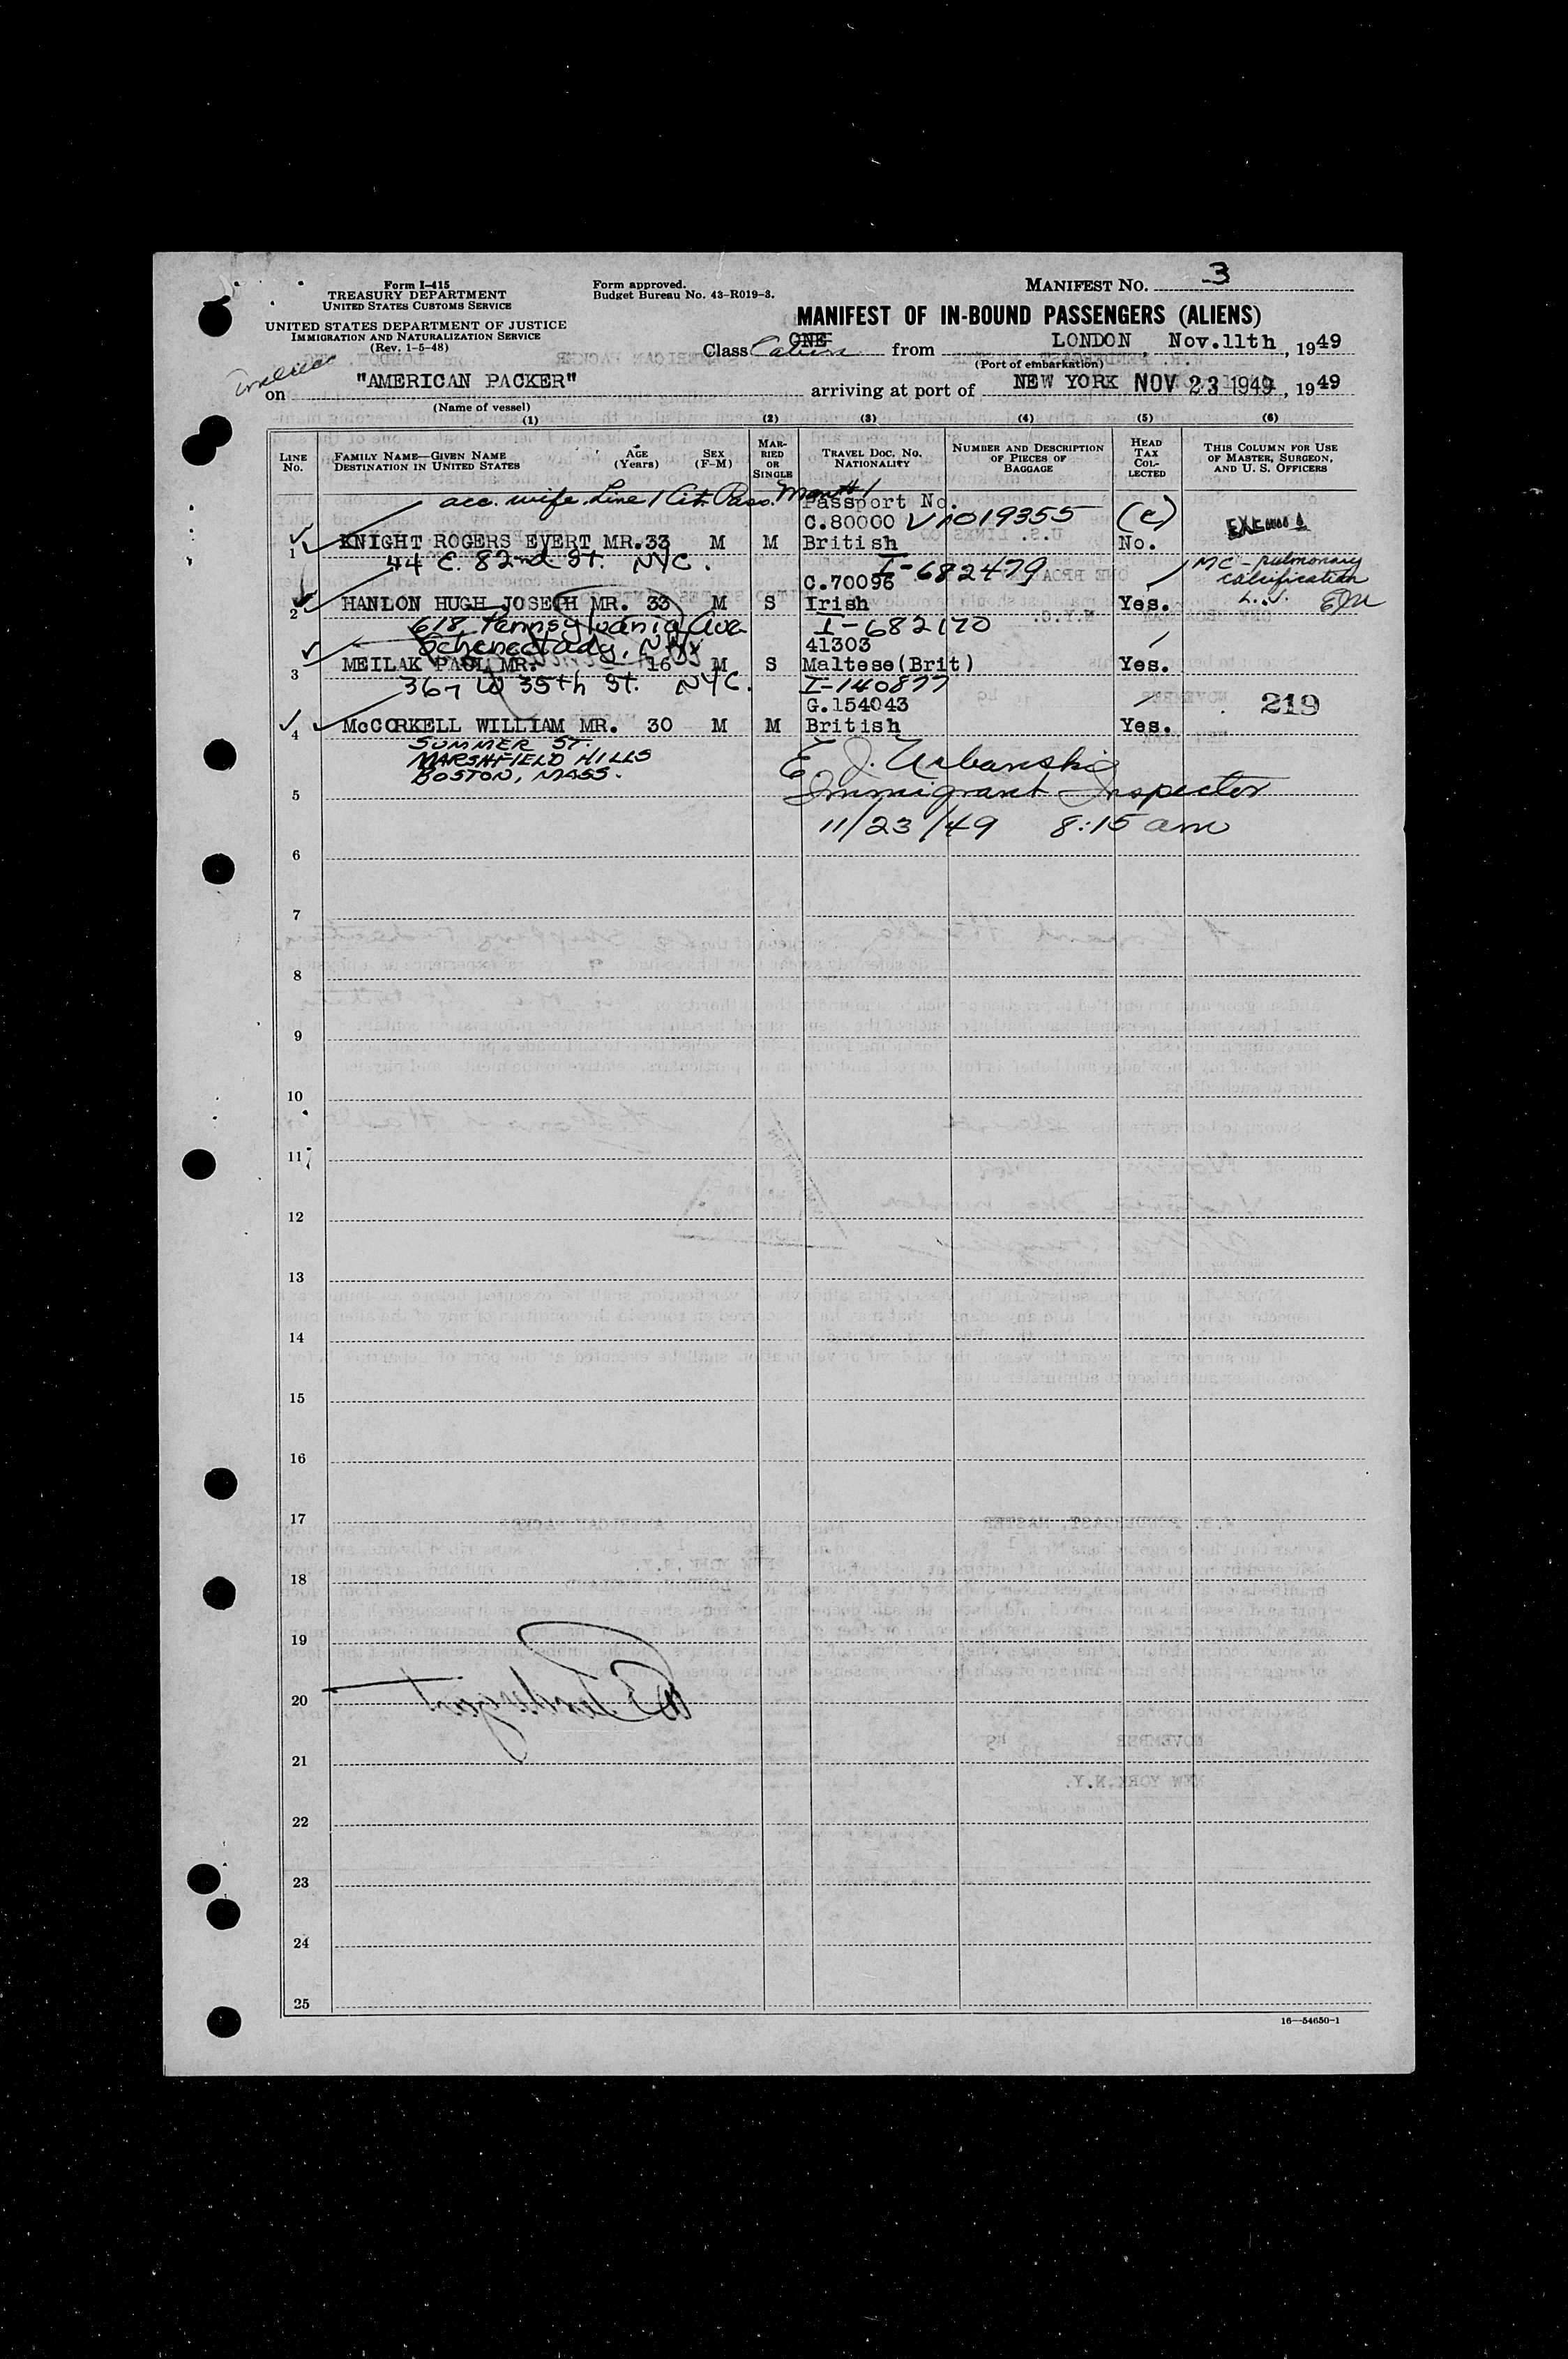 Form I-415
TREASURY DEPARTMENT
UNITED STATES CUSTOMS SERVICE
UNITED STATES DEPARTMENT OF JUSTICE
IMMIGRATION AND NATURALIZATION SERVICE
(Rev. 1-5-48)
Form approved.
Budget Bureau No. 43-R019-3.
MANIFEST No. 3
MANIFEST OF IN-BOUND PASSENGERS (ALIENS)
Class ONE Cabin from LONDON, Nov.11th, 1949
(Port of embarkation)
on "AMERICAN PACKER" arriving at port of NEW YORK NOV 23 1949, 1949
(Name of vessel)
(1) (2) (3) (4) (5) (6)
LINE No.
FAMILY NAME—GIVEN NAME
DESTINATION IN UNITED STATES
AGE (Years)
SEX (F-M)
MARRIED OR SINGLE
TRAVEL DOC. NO. NATIONALITY
NUMBER AND DESCRIPTION OF PIECES OF BAGGAGE
HEAD TAX COLLECTED
THIS COLUMN FOR USE OF MASTER, SURGEON, AND U. S. OFFICERS
acc. wife Line 1 Cit. Pass. Man # 1
Passport No.
C.80000 V1019355 (c)
1 KNIGHT ROGERS EVERT MR. 33 M M British No.
44 E. 82nd St. NYC. I-682479
MC - pulmonary calcification
C.70096
2 HANLON HUGH JOSEPH MR. 33 M S Irish Yes.
618 Pennsylvania Ave I-682170
Schenectady, N.Y.
41303
3 MEILAK PAUL MR. 16 M S Maltese(Brit) Yes.
367 W 35th St. NYC. I-140877
G.154043
219
4 McCORKELL WILLIAM MR. 30 M M British Yes.
SUMMER ST.
MARSHFIELD HILLS
BOSTON, MASS.
E. J. Urbanski
Immigrant Inspector
11/23/49 8:15 am
5
6
7
8
9
10
11
12
13
14
15
16
17
18
19
20
21
22
23
24
25
16—54650-1